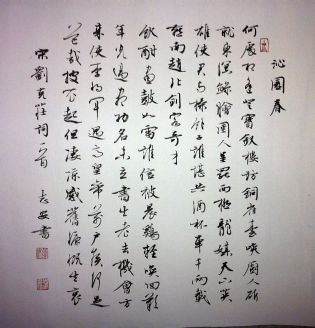 沁園春
何處相逢登寶釵樓訪銅雀臺喚廚人斫
就東溟鯨膾圉人呈罷西極龍媒天下英
雄使君與操餘子誰堪共酒杯車千兩載
燕南趙北劍客奇才
飲酣畫鼓如雷誰信被晨雞輕喚回歎
年光過盡功名未立書生老去機會方
來使李將軍遇高皇帝萬戶侯何足
道哉披衣起但淒涼感舊慷慨生哀
宋劉克莊詞一首 書